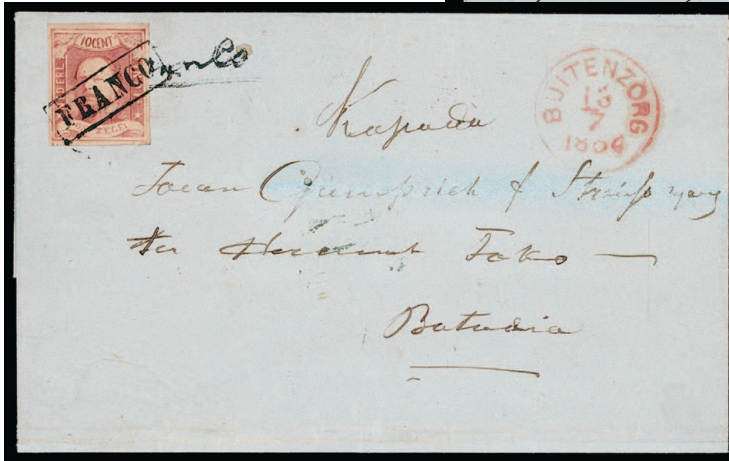 10CENT
POSTZEGEL
FRANCO
Franco
BUITENZORG
13
7
1864
Kapada
Toean Gumprich & Strauss yang
ter Hormat Toko —
Batavia